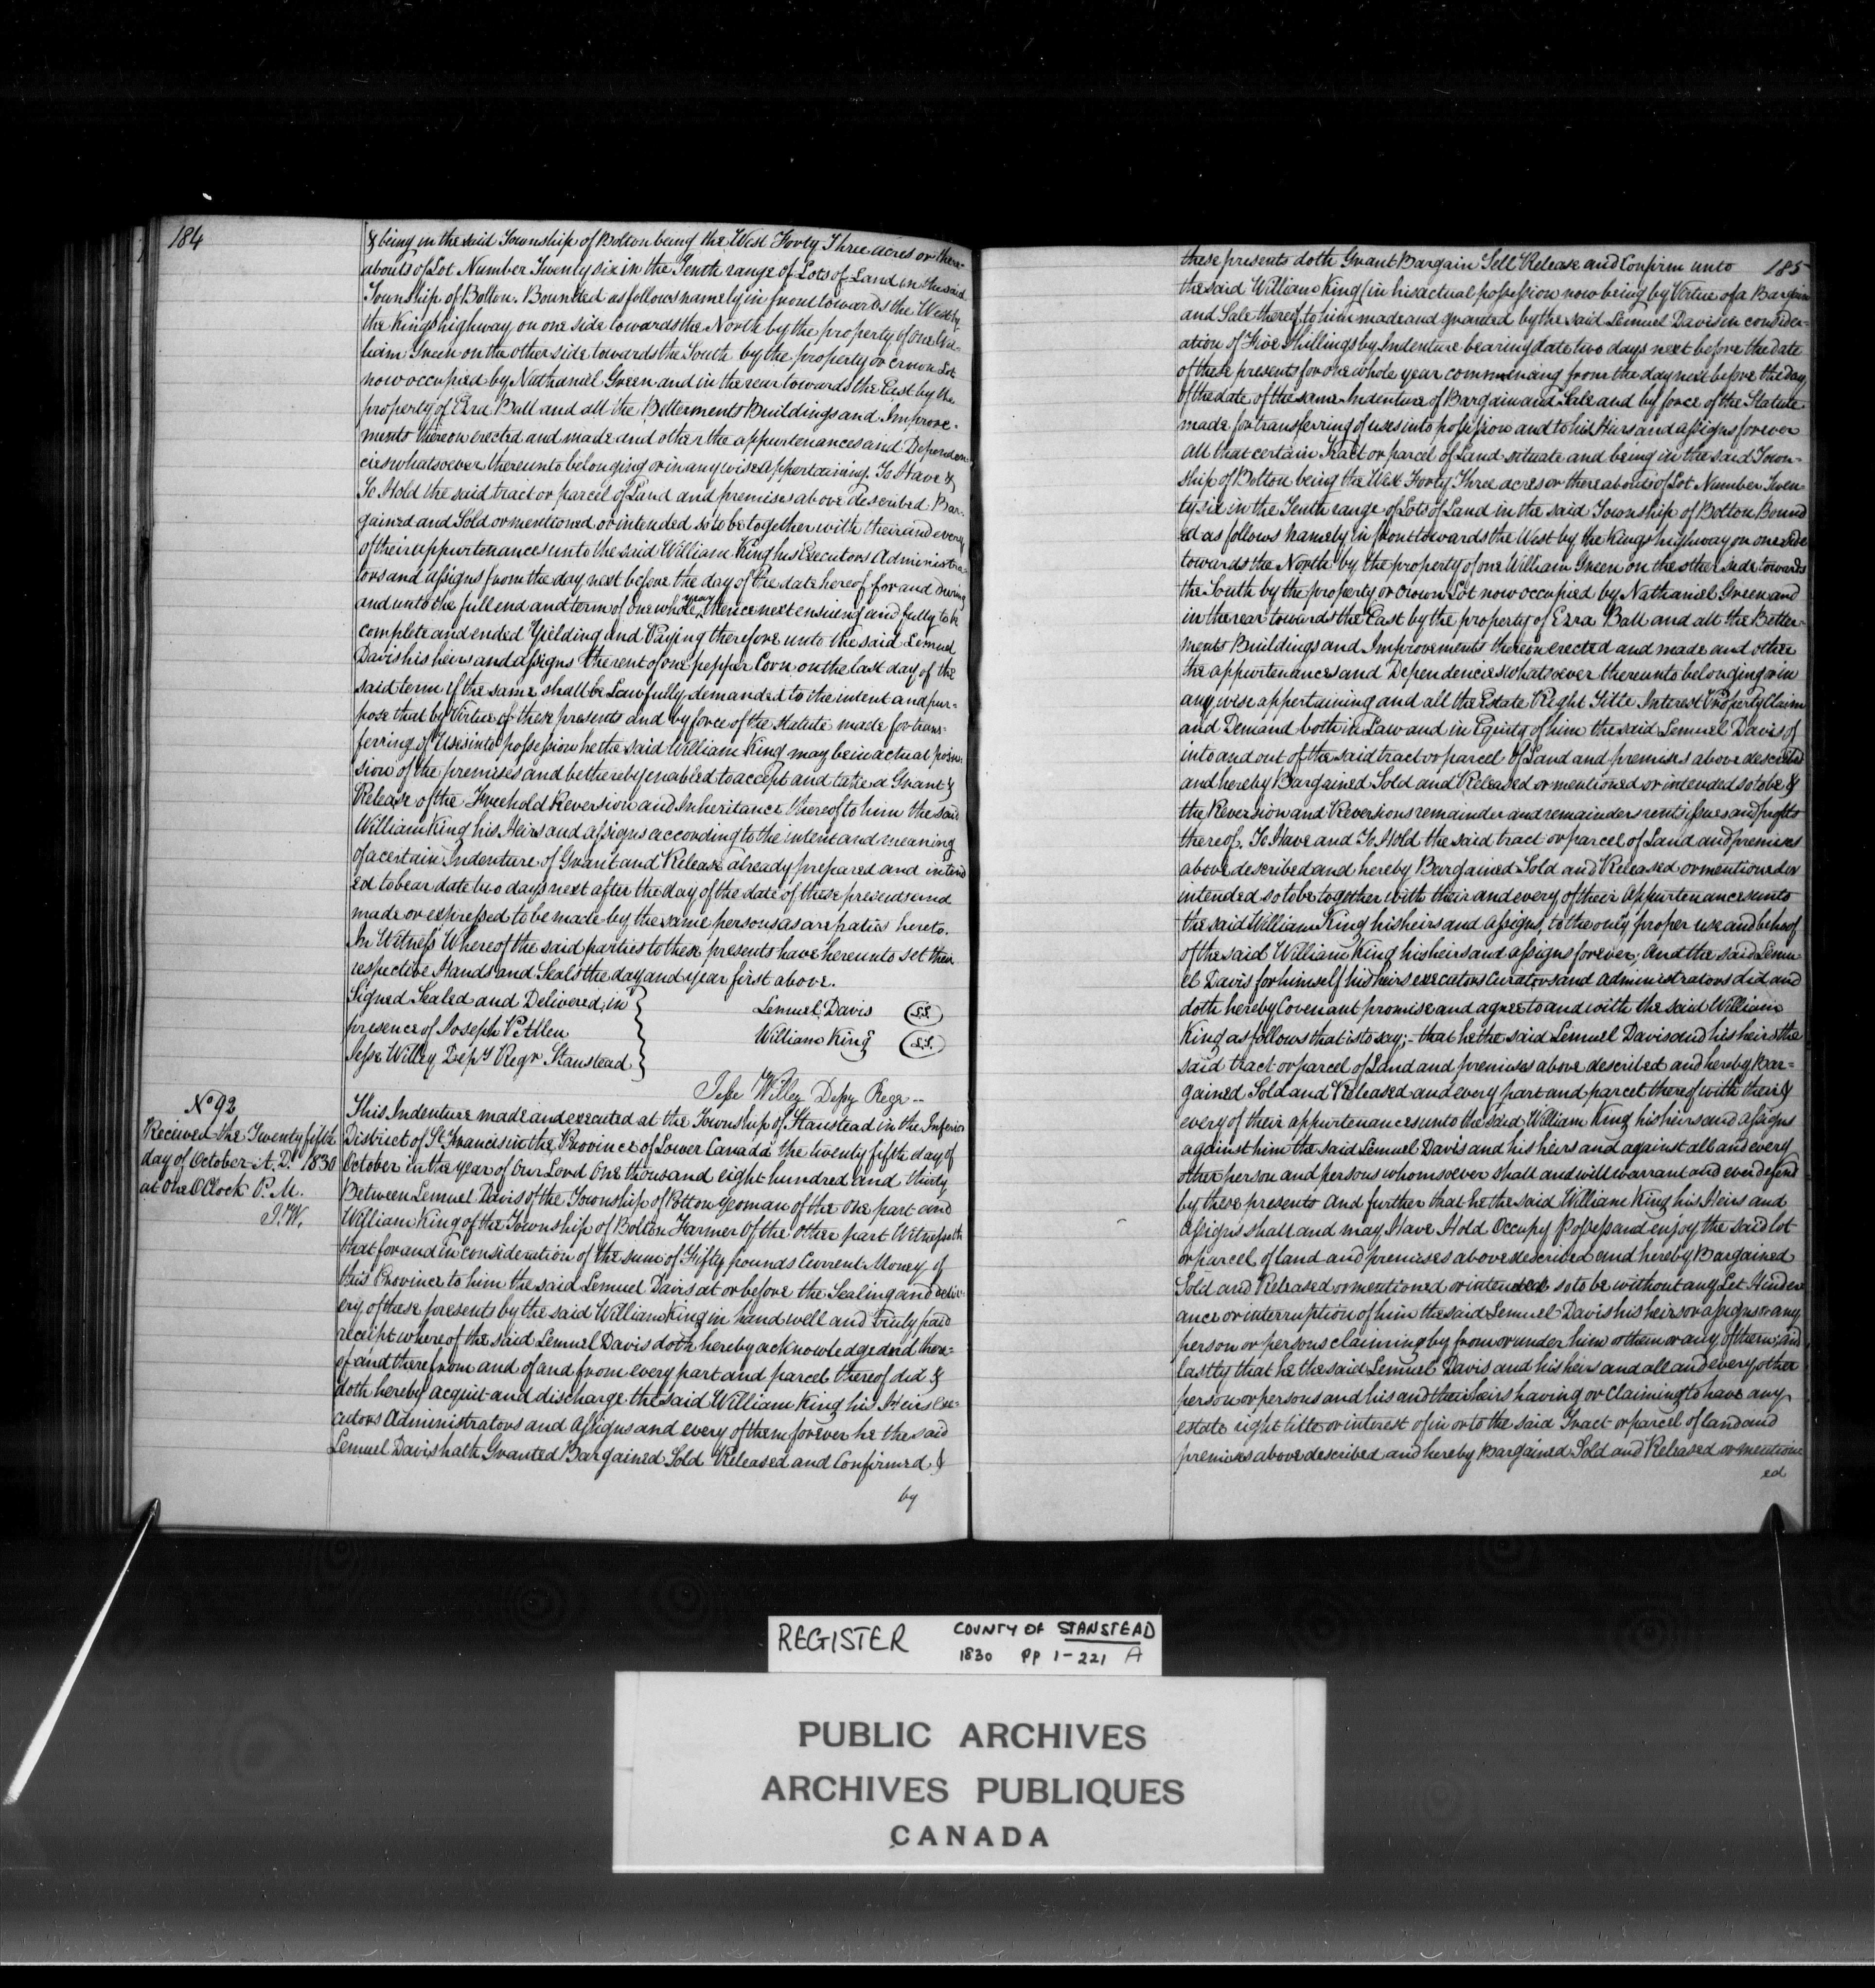 184
& being in the said Township of Bolton being the West Forty Three acres or there-
abouts of Lot Number Twenty six in the Tenth range of Lots of Land in the said
Township of Bolton. Bounded as follows namely in front towards the West by
the Kings highway on one side towards the North by the property of one Wil-
liam Green on the other side towards the South by the property or crown Lot
now occupied by Nathaniel Green and in the rear towards the East by the
property of Ezra Ball and all the Betterments Buildings and Improve-
ments thereon erected and made and other the appurtenances and Dependen-
cies whatsoever thereunto belonging or in any wise appertaining. To Have &
To Hold the said tract or parcel of Land and premises above described Bar-
gained and Sold or mentioned or intended so to be together with their and every
of their appurtenances unto the said William King his Executors Administra-
tors and assigns from the day next before the day of the date hereof for and during
and unto the full end and term of one whole year thence next ensuing and fully to be
complete and ended Yielding and Paying therefore unto the said Lemuel
Davis his heirs and assigns the rent of one pepper Corn on the last day of the
said term if the same shall be Lawfully demanded to the intent and pur-
pose that by Virtue of these presents and by force of the statute made for trans-
ferring of Uses into possession he the said William King may be in actual posses-
sion of the premises and be thereby enabled to accept and take a Grant &
Release of the Freehold Reversion and Inheritance thereof to him the said
William King his Heirs and assigns according to the intent and meaning
of a certain Indenture of Grant and Release already prepared and intend
ed to bear date two days next after the day of the date of these presents and
made or expressed to be made by the same persons as are paties hereto.
In Witness Whereof the said parties to these presents have hereunto set their
respective Hands and Seals the day and year first above.
Signed Sealed and Delivered in
presence of Joseph Pettlen
Jesse Willey Depy Regr Stanstead
Lemuel Davis L.S.
William King L.S.
Jesse Willey Depy Regr--
No 92
Received the Twenty fifth
day of October A.D. 1830
at One OClock P.M.
J.W.
This Indenture made and executed at the Township of Stanstead in the Inferior
District of St Francis in the Province of Lower Canada the twenty fifth day of
October in the year of Our Lord One thousand eight hundred and thirty
Between Lemuel Davis of the Township of Potton Yeoman of the one part and
William King of the Township of Bolton Farmer of the other part Witnesseth
that for and in consideration of the sum of Fifty pounds Current Money of
this Province to him the said Lemuel Davis at or before the Sealing and deliv-
ery of these presents by the said William King in hand well and truly paid
receipt whereof the said Lemuel Davis doth hereby acknowledge and there-
of and therefrom and of and from every part and parcel thereof did &
doth hereby acquit and discharge the said William King his Heirs Exe-
cutors Administrators and Assigns and every of them forever he the said
Lemuel Davis hath Granted Bargained Sold Released and Confirmed &
by
185
these presents doth Grant Bargain Sell Release and Confirm unto
the said William King (in his actual possession now being by Virtue of a Bargain
and Sale thereof to him made and granted by the said Lemuel Davis in consider-
ation of Five Shillings by Indenture bearing date two days next before the date
of these presents for one whole year commencing from the day next before the day
of the date of the same Indenture of Bargain and Sale and by force of the Statute
made for transferring of uses into possession and to his Heirs and assigns forever
all that certain Tract or parcel of Land situate and being in the said Town-
ship of Bolton being the West Forty Three acres or thereabouts of Lot Number Twen-
ty six in the Tenth range of Lots of Land in the said Township of Bolton Bound
ed as follows namely in front towards the West by the Kings highway on one side
towards the North by the property of one William Green on the other side towards
the South by the property or crown Lot now occupied by Nathaniel Green and
in the rear towards the East by the property of Ezra Ball and all the Better-
ments Buildings and Improvements thereon erected and made and other
the appurtenances and Dependencies whatsoever thereunto belonging or in
any wise appertaining and all the Estate Right Title Interest Property Claim
and Demand both in Law and in Equity of him the said Lemuel Davis of
into and out of the said tract or parcel of Land and premises above described
and hereby Bargained Sold and Released or mentioned or intended so to be &
the Reversion and Reversions remainder and remainders rents issues and profits
thereof. To Have and To Hold the said tract or parcel of Land and premises
above described and hereby Bargained Sold and Released or mentioned or
intended so to be together with their and every of their Appurtenances unto
the said William King his heirs and Assigns, to the only proper use and behoof
of the said William King his heirs and assigns forever. And the said Lemu
el Davis for himself his heirs executors Curators and administrators did and
doth hereby Covenant promise and agree to and with the said William
King as follows that is to say;- that he the said Lemuel Davis and his heirs the
said tract or parcel of Land and premises above described and hereby Bar-
gained Sold and Released and every part and parcel thereof with their &
every of their appurtenances unto the said William King his heirs and assigns
against him the said Lemuel Davis and his heirs and against all and every
other person and persons whomsoever shall and will warrant and ever defend
by these presents And further that he the said William King his Heirs and
assigns shall and may Have Hold Occupy Possess and enjoy the said lot
or parcel of land and premises above described and hereby Bargained
Sold and Released or mentioned or intended so to be without any Let Hinder
ance or interruption of him the said Lemuel Davis his heirs or assigns or any
person or persons claiming by from or under him or them or any of them; and
lastly that he the said Lemuel Davis and his heirs and all and every other
person or persons and his and their heirs having or claiming to have any
estate right title or interest of in or to the said Tract or parcel of land and
premises above described and hereby Bargained Sold and Released or mention
ed
REGISTER COUNTY OF STANSTEAD
1830 PP 1-221 A
PUBLIC ARCHIVES
ARCHIVES PUBLIQUES
CANADA